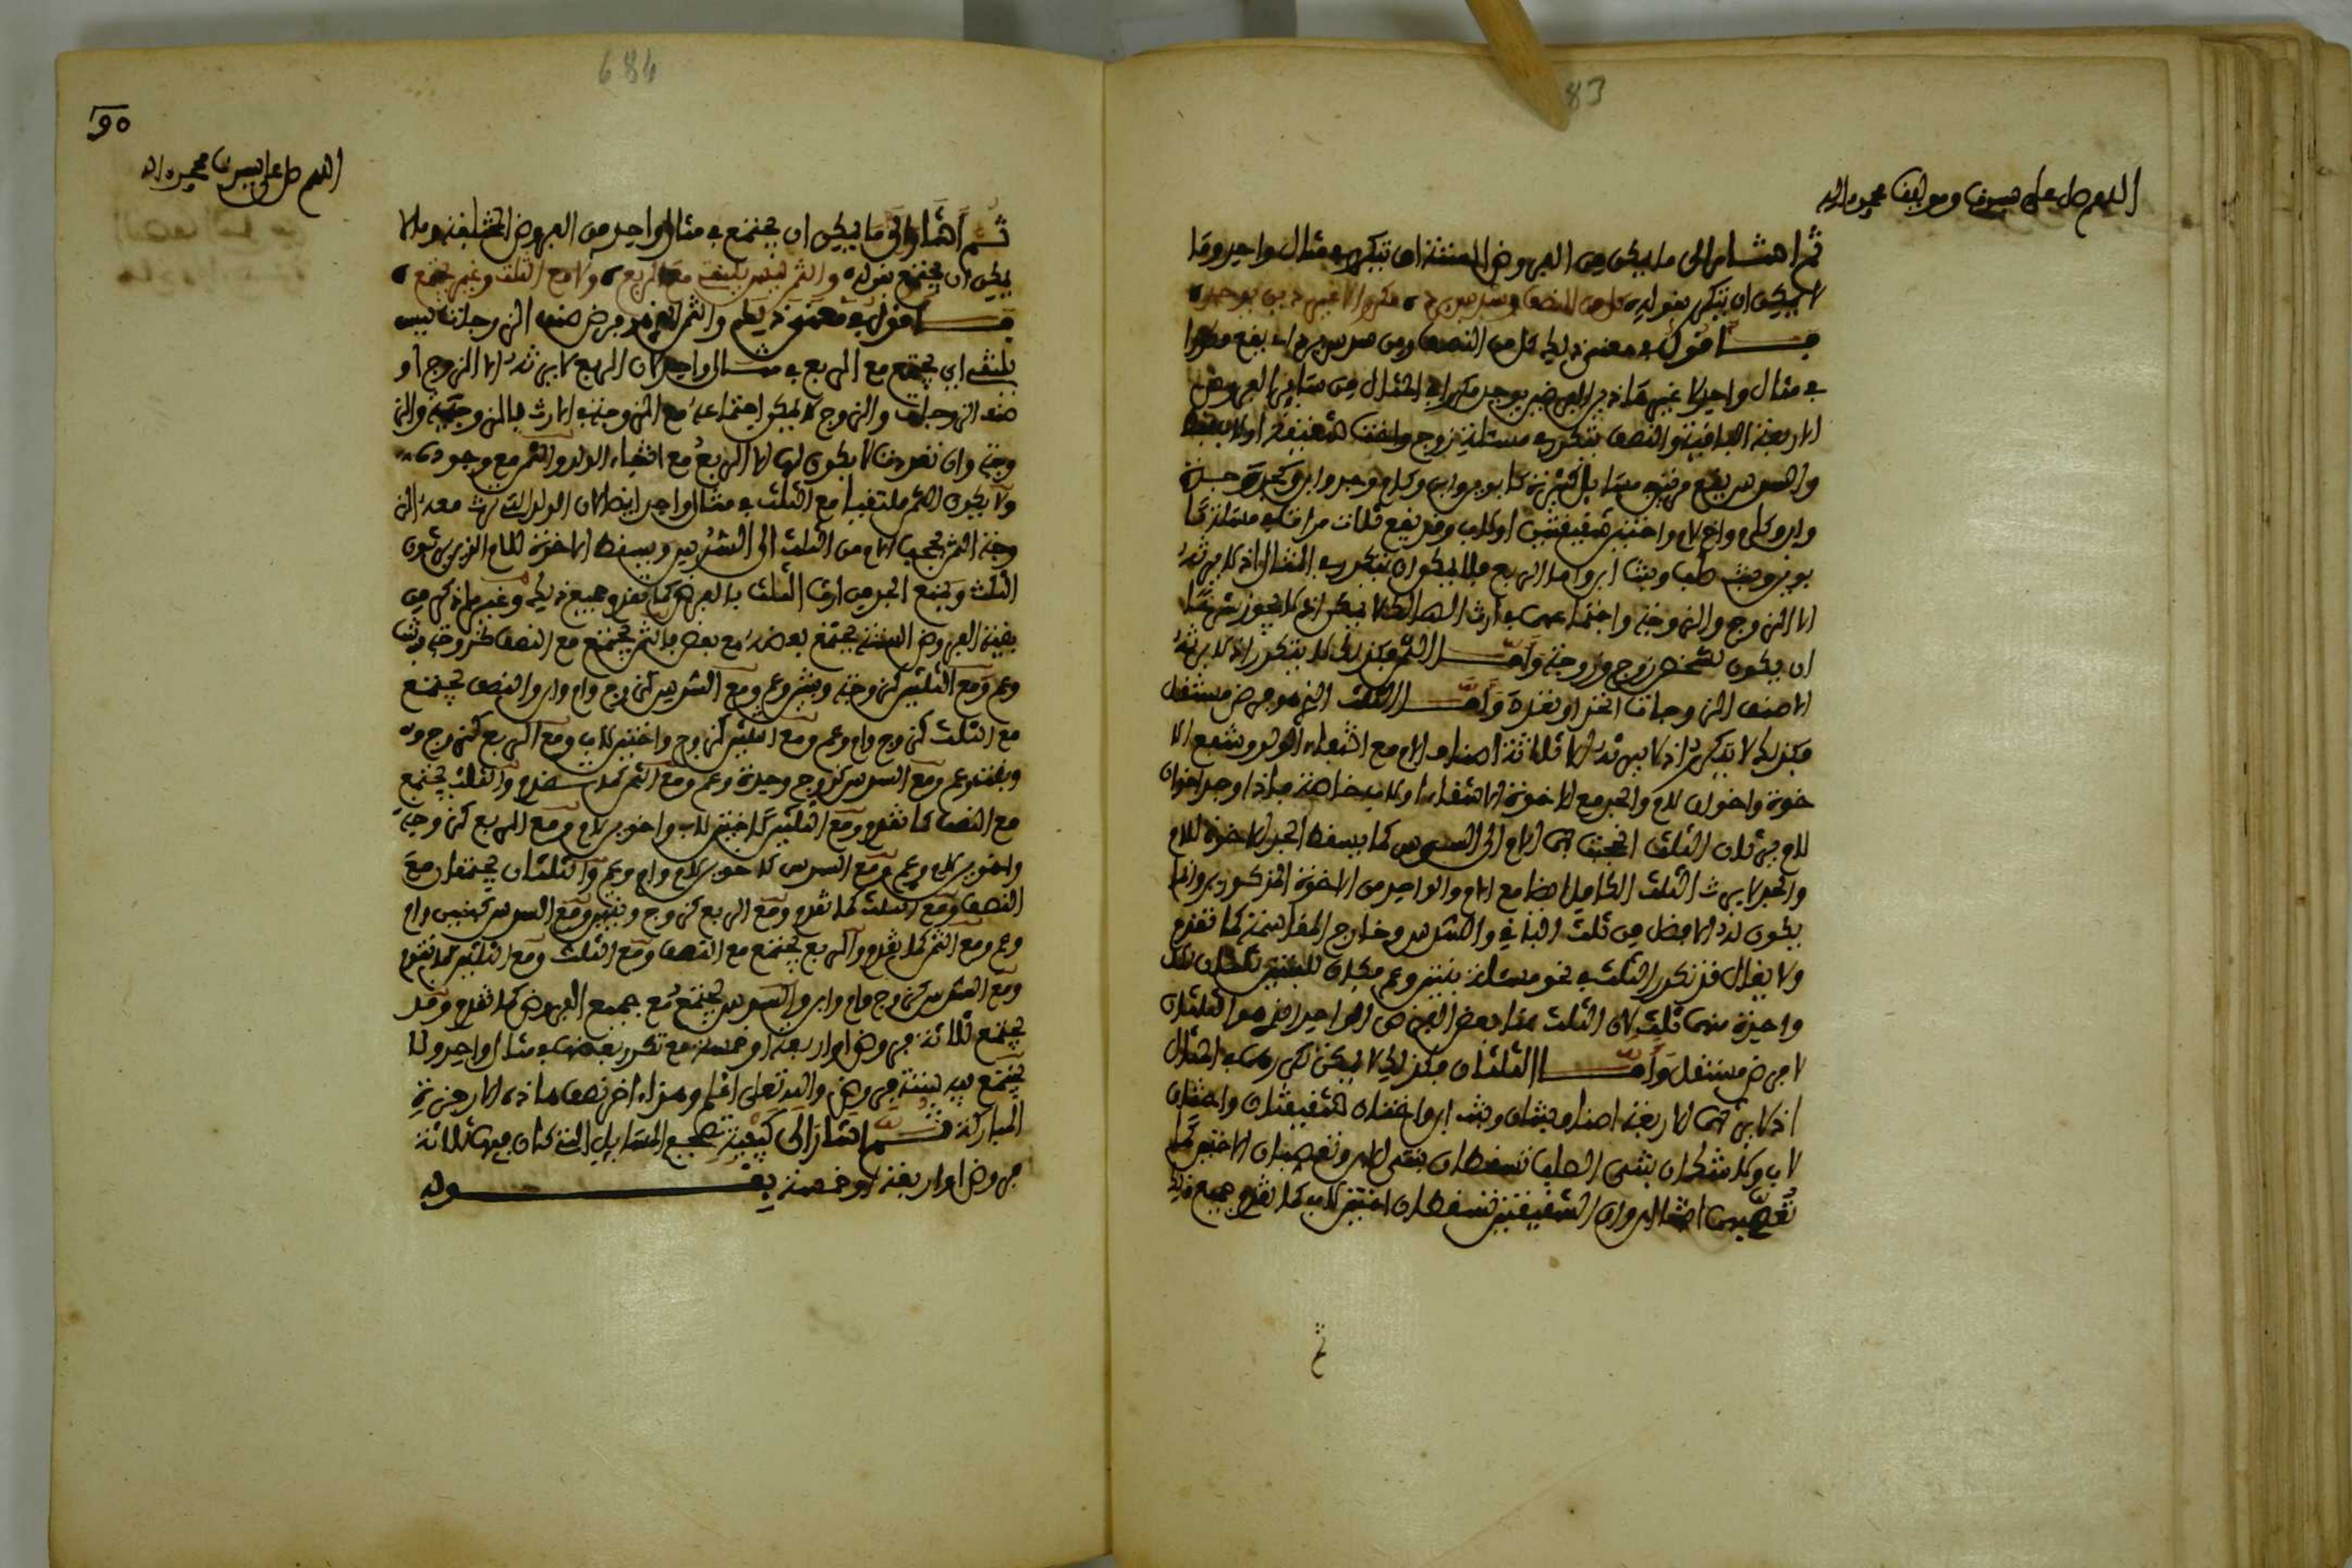 83
اللهم صل على سيدنا ومولانا محمد واله
ثم اشار الى ما يمكن من الفروض الستة ان يتكرر في مثال واحد وما
لا يمكن ان يتكرر بقوله
فاقول في معنى ذلك كل من النصف ومن سدس يقع مكررا
في مثال واحد لا غير هاذين الفرضين يوجد مكررا في المثال من سائر الفروض
الاربعة الباقية والنصف يتكرر في مسئلة زوج واخت شقيقة او لاب فقط
والسدس يقع مرتين في مسايل كثيرة كابوين وابن وكام وجد وابن وكجدة
وابن وكام واخ لام واختين شقيقتين او لاب وقد يقع ثلاث مرات في مسئلة
بوين وبنت صلب وبنت ابن واما الربع فلا يمكن ان يتكرر في المثال اذ لا يرثه
الا الزوج والزوجة واجتماعهما في ارث لا يمكن اذ لا يجوز شرعا
ان يكون لشخص زوج وزوجة واما الثمن فكذلك لا يتكرر اذ لا يرثه
الا صنف الزوجات اتحد او تعدد واما الثلث الذي هو فرض مستقل
فكذلك لا يتكرر اذ لا يرثه الا ثلاثة اصناف الام مع انتفاء الولد
خوة واخوان للام والجد مع الاخوة الاشقاء او للاب خاصة فاذا وجد اخوان
للام يرثان الثلث انحجبت بهما الام الى السدس كما يسقط الجد الاخوة للام
والجد لا يرث الثلث الكامل ايضا مع الام والواحد من الاخوة المذكورين وانما
يكون له الافضل من ثلث الباقي والسدس وخارج المقاسمة كما تقدم
ولا يقال قد تكرر الثلث في نحو مسئلة بنتين وعم فكان للبنتين
واحدة منهما ثلث لان الثلث هنا بعض الفرض الواحد الذي هو الثلثان
لا فرض مستقل واما الثلثان فكذلك لا يمكن تكررهما في المثال
اذ لا يرثهما الا اربعة اصناف بنتان وبنتا ابن واختان شقيقتان واختان
لاب وكذلك بنتى الصلب تسقطان بنتى الابن وتعصبان الاختين كما
تعصبهما وان الشقيقتين تسقطان اختين للاب كما تقدم جميع ذلك
684
90
اللهم صل على سيدنا محمد واله
ثم اشار الى ما يمكن ان يجتمع في مثال واحد من الفروض المختلفة وما لا
يمكن ان يجتمع بقوله والثمن ليس يلتقى مع الربع ولا مع الثلث وغير يجتمع
فاقول في معنى ذلك والثمن الذي هو فرض صنف الزوجات ليس
يلتقى اي يجتمع مع الربع في مثال واحد لان الربع لا يرثه الا الزوج او
صنف الزوجات والزوج لا يمكن اجتماعه مع الزوجة في الارث والز
وجة وان تعددت لا يكون لها الا الربع مع انتفاء الولد والثمن مع وجوده
ولا يكون الثمن ملتقيا مع الثلث في مثال واحد ايضا لان الولد الذي ترث معه الز
وجة الثمن يحجب الام من الثلث الى السدس ويسقط الاخوة للام الذين يرثون
الثلث ويمنع الجد من ارث الثلث بالفرض كما تقدم جميع ذلك وغير ما ذكر من
بقية الفروض الستة يجتمع بعضه مع بعض فالثمن يجتمع مع النصف كزوجة وبنت
وعم ومع الثلثين كزوجة وبنتين وعم ومع السدس كزوجة وام وابن والنصف يجتمع
مع الثلث كزوج وام وعم ومع الثلثين كزوج واختين للاب ومع الربع كزوج و
وبنت وعم ومع السدس كزوج وجدة وعم ومع الثمن كما تقدم والثلث يجتمع
مع النصف كما تقدم ومع الثلثين كاختين للاب واخوين للام ومع الربع كزوجة
واخوين للام وعم ومع السدس كاخوين للام وام وعم والثلثان يجتمعان مع
النصف ومع الثلث كما تقدم ومع الربع كزوج وبنتين ومع السدس كبنتين وام
وعم ومع الثمن كما تقدم والربع يجتمع مع النصف ومع الثلث ومع الثلثين كما تقدم
ومع السدس كزوج وام وابن والسدس يجتمع مع جميع الفروض كما تقدم وقد
يجتمع ثلاثة فروض او اربعة او خمسة مع تكرر بعضها في مثال واحد ولا
يجتمع فيه ستة فروض والله تعالى اعلم وهذا اخر نصف هاذه الارجوزة
المباركة ثم اشار الى كيفية تصحيح المسايل التي كان فيها ثلاثة
فروض او اربعة او خمسة بقوله